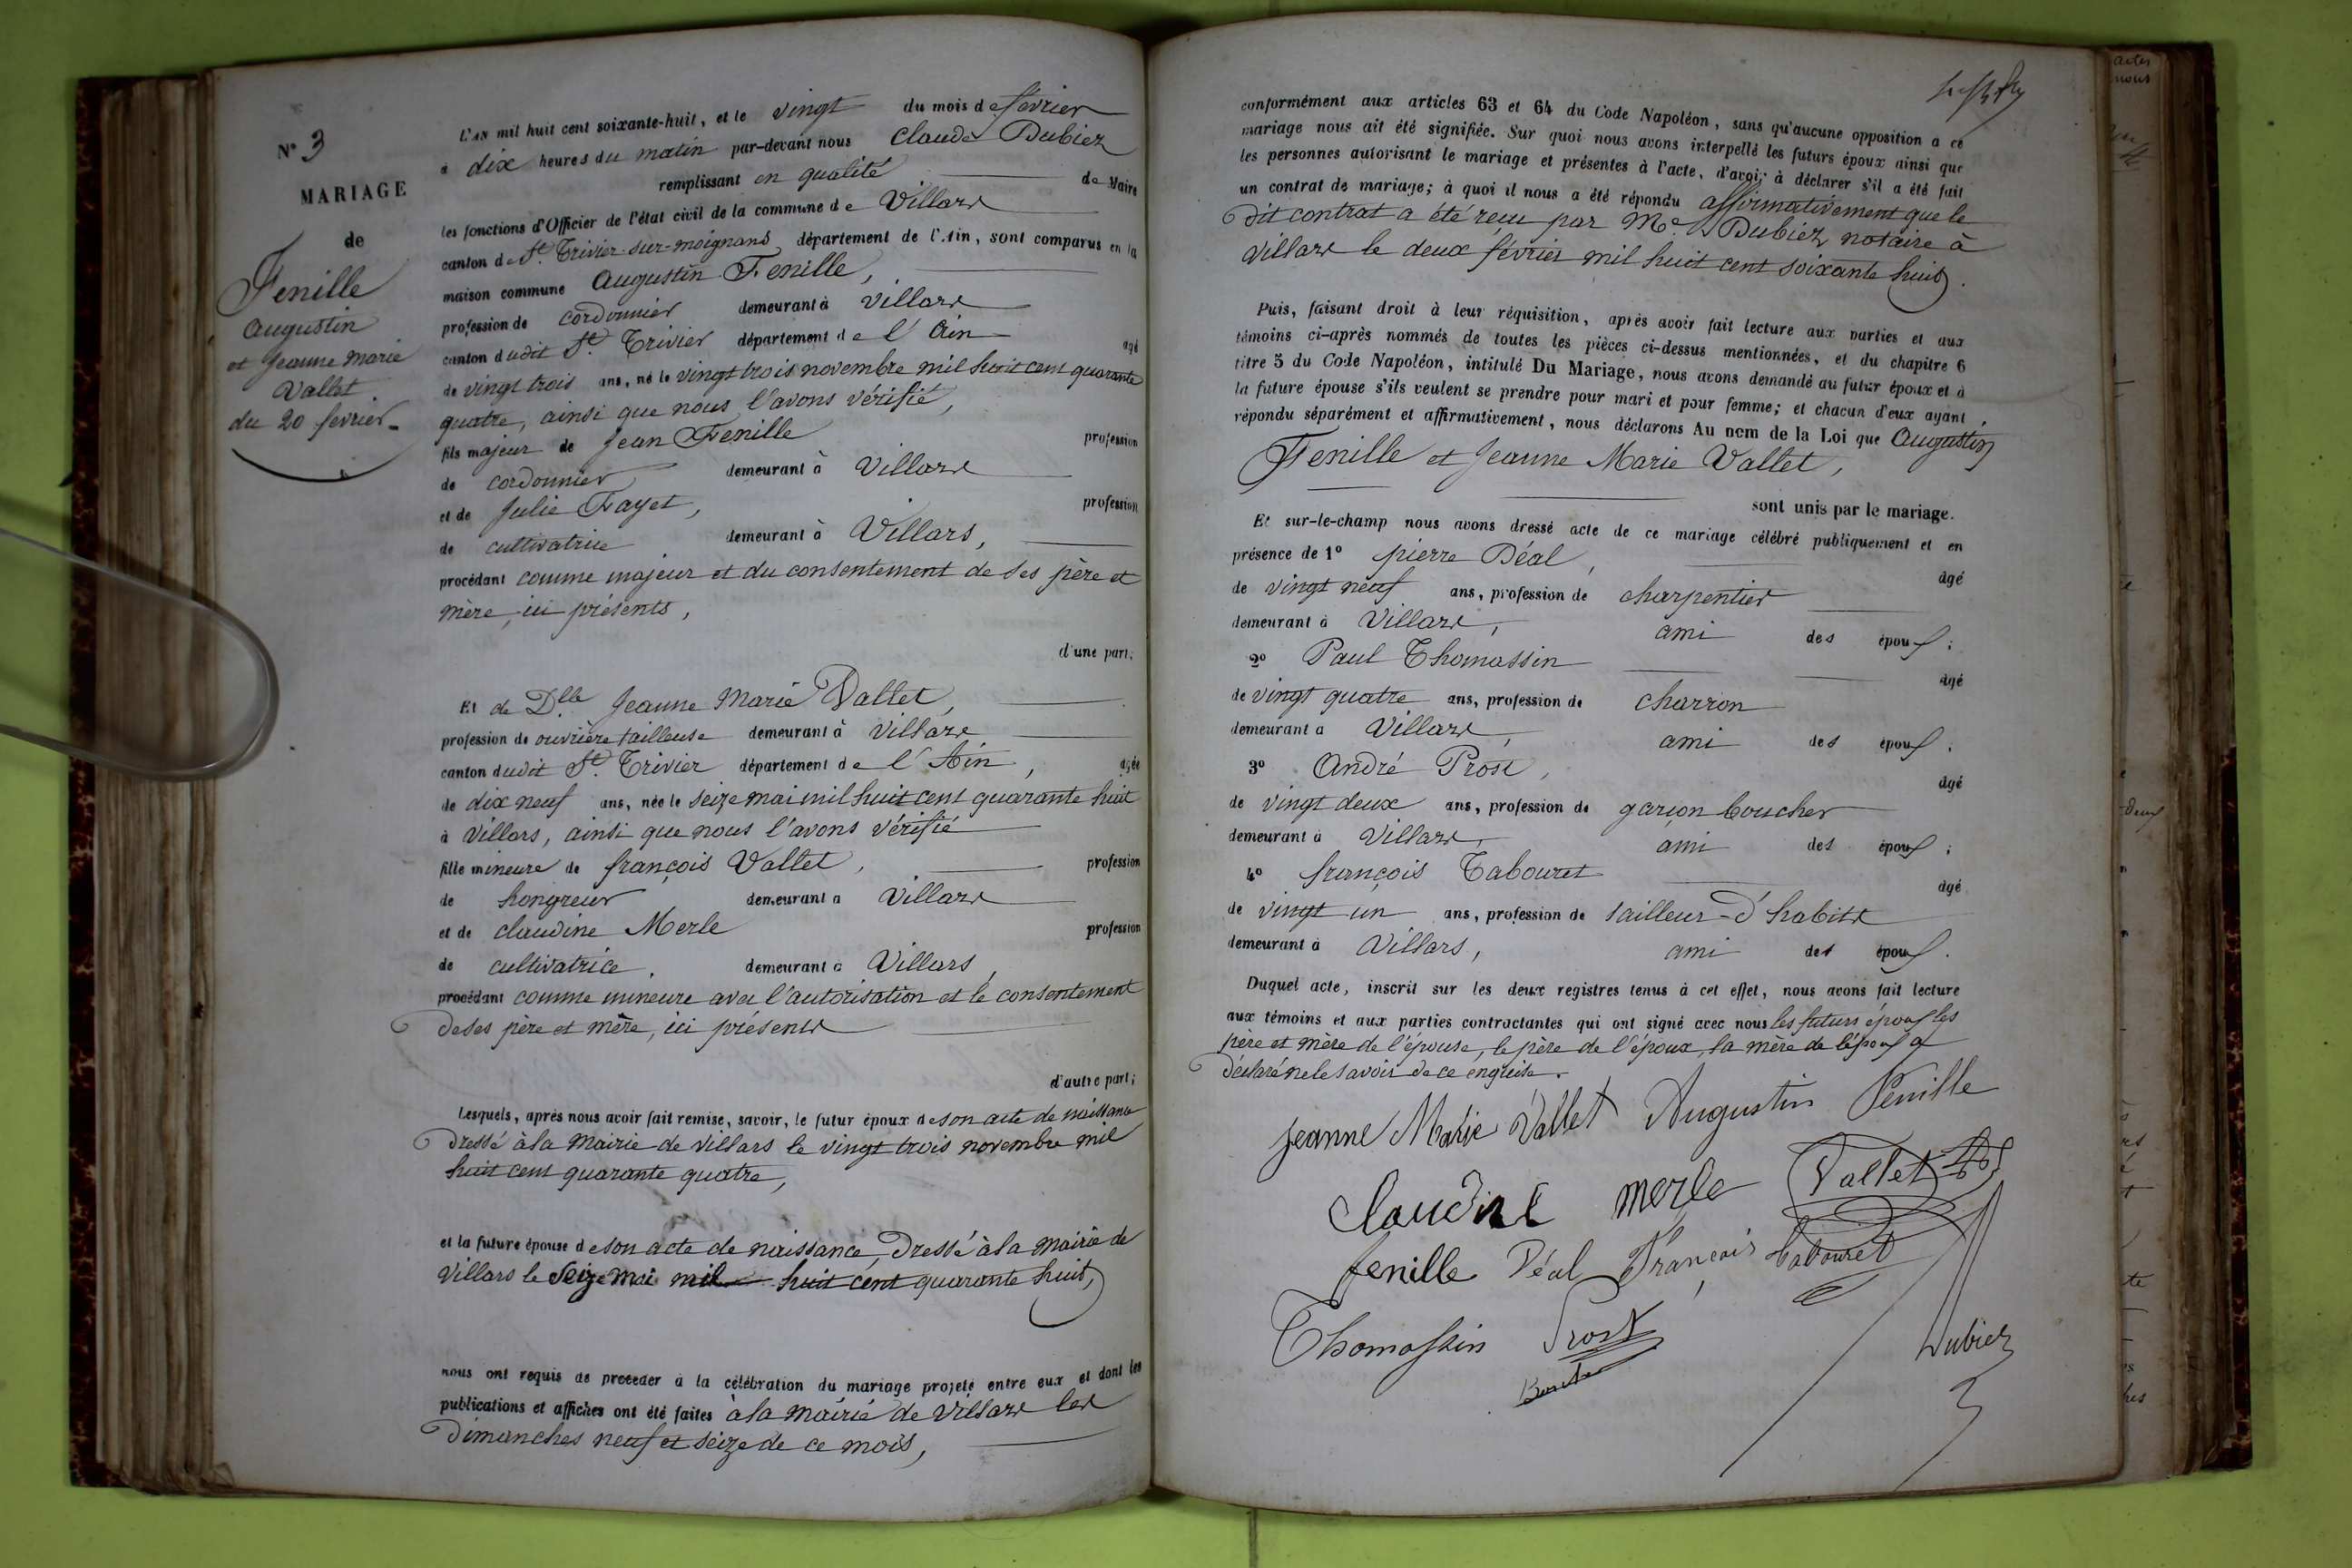 N° 3
MARIAGE
de
Fenille
Augustin
et Jeanne Marie
Vallet
du 20 fevrier
L'AN mil huit cent soixante-huit, et le vingt du mois de février
à dix heures du matin par-devant nous Claude Dubiez
remplissant en qualité de Maire
les fonctions d'Officier de l'état civil de la commune de Villars
canton de St. Trivier-sur-moignans, département de l'Ain, sont comparus en la
maison commune Augustin Fenille,
profession de cordonnier demeurant à Villars
canton dudit St. Trivier département de l'Ain agé
de vingt trois ans, né le vingt trois novembre mil huit cent quarante
quatre, ainsi que nous l'avons vérifié,
fils majeur de Jean Fenille profession
de cordonnier demeurant à Villars
et de Julie Fayet, profession
de cultivatrice demeurant à Villars,
procédant comme majeur et du consentement de ses père et
mère, ici présents,
d'une part;
Et de Dlle Jeanne Marie Vallet,
profession de ouvrière tailleuse demeurant à Villars
canton dudit St. Trivier département de l'Ain, agée
de dix neuf ans, née le seize mai mil huit cent quarante huit
à Villars, ainsi que nous l'avons vérifié
fille mineure de françois Vallet, profession
de hongreur demeurant à Villars
et de claudine Merle profession
de cultivatrice. demeurant à Villars,
procédant comme mineure avec l'autorisation et le consentement
de ses père et mère, ici présents
d'autre part;
Lesquels, après nous avoir fait remise, savoir, le futur époux de son acte de naissance
dressé à la mairie de Villars le vingt trois novembre mil
huit cent quarante quatre,
et la future épouse de son acte de naissance, dressé à la mairie de
Villars le seize mai mil huit cent quarante huit,
nous ont requis de procéder à la célébration du mariage projeté entre eux et dont les
publications et affiches ont été faites à la mairie de Villars les
dimanches neuf et seize de ce mois,
conformément aux articles 63 et 64 du Code Napoléon, sans qu'aucune opposition a ce
mariage nous ait été signifiée. Sur quoi nous avons interpellé les futurs époux ainsi que
les personnes autorisant le mariage et présentes à l'acte, d'avoir à déclarer s'il a été fait
un contrat de mariage; à quoi il nous a été répondu affirmativement que le
dit contrat a été reçu par Me. Dubiez notaire à
Villars le deux février mil huit cent soixante huit.
Puis, faisant droit à leur réquisition, après avoir fait lecture aux parties et aux
témoins ci-après nommés de toutes les pièces ci-dessus mentionnées, et du chapitre 6
titre 5 du Code Napoléon, intitulé Du Mariage, nous avons demandé au futur époux et à
la future épouse s'ils veulent se prendre pour mari et pour femme; et chacun d'eux ayant
répondu séparément et affirmativement, nous déclarons Au nom de la Loi que Augustin
Fenille et Jeanne Marie Vallet,
sont unis par le mariage.
Et sur-le-champ nous avons dressé acte de ce mariage célébré publiquement et en
présence de 1° pierre Déal, âgé
de vingt neuf ans, profession de charpentier
demeurant à Villars, ami des époux;
2° Paul Thomassin âgé
de vingt quatre ans, profession de charron
demeurant a Villars, ami des époux.
3° André Prost, âgé
de vingt deux ans, profession de garçon boucher
demeurant à Villars, ami des époux;
4° françois Tabouret âgé
de vingt un ans, profession de tailleur d'habits
demeurant à Villars, ami des époux.
Duquel acte, inscrit sur les deux registres tenus à cet effet, nous avons fait lecture
aux témoins et aux parties contractantes qui ont signé avec nous les futurs époux les
père et mère de l'épouse, le père de l'époux, la mère de l'époux a
déclaré ne le savoir de ce enquise.
Jeanne Marie Vallet Augustin Fenille
Claudine merle Vallet
fenille Déal François Tabouret
Thomassin Prost
Dubiez